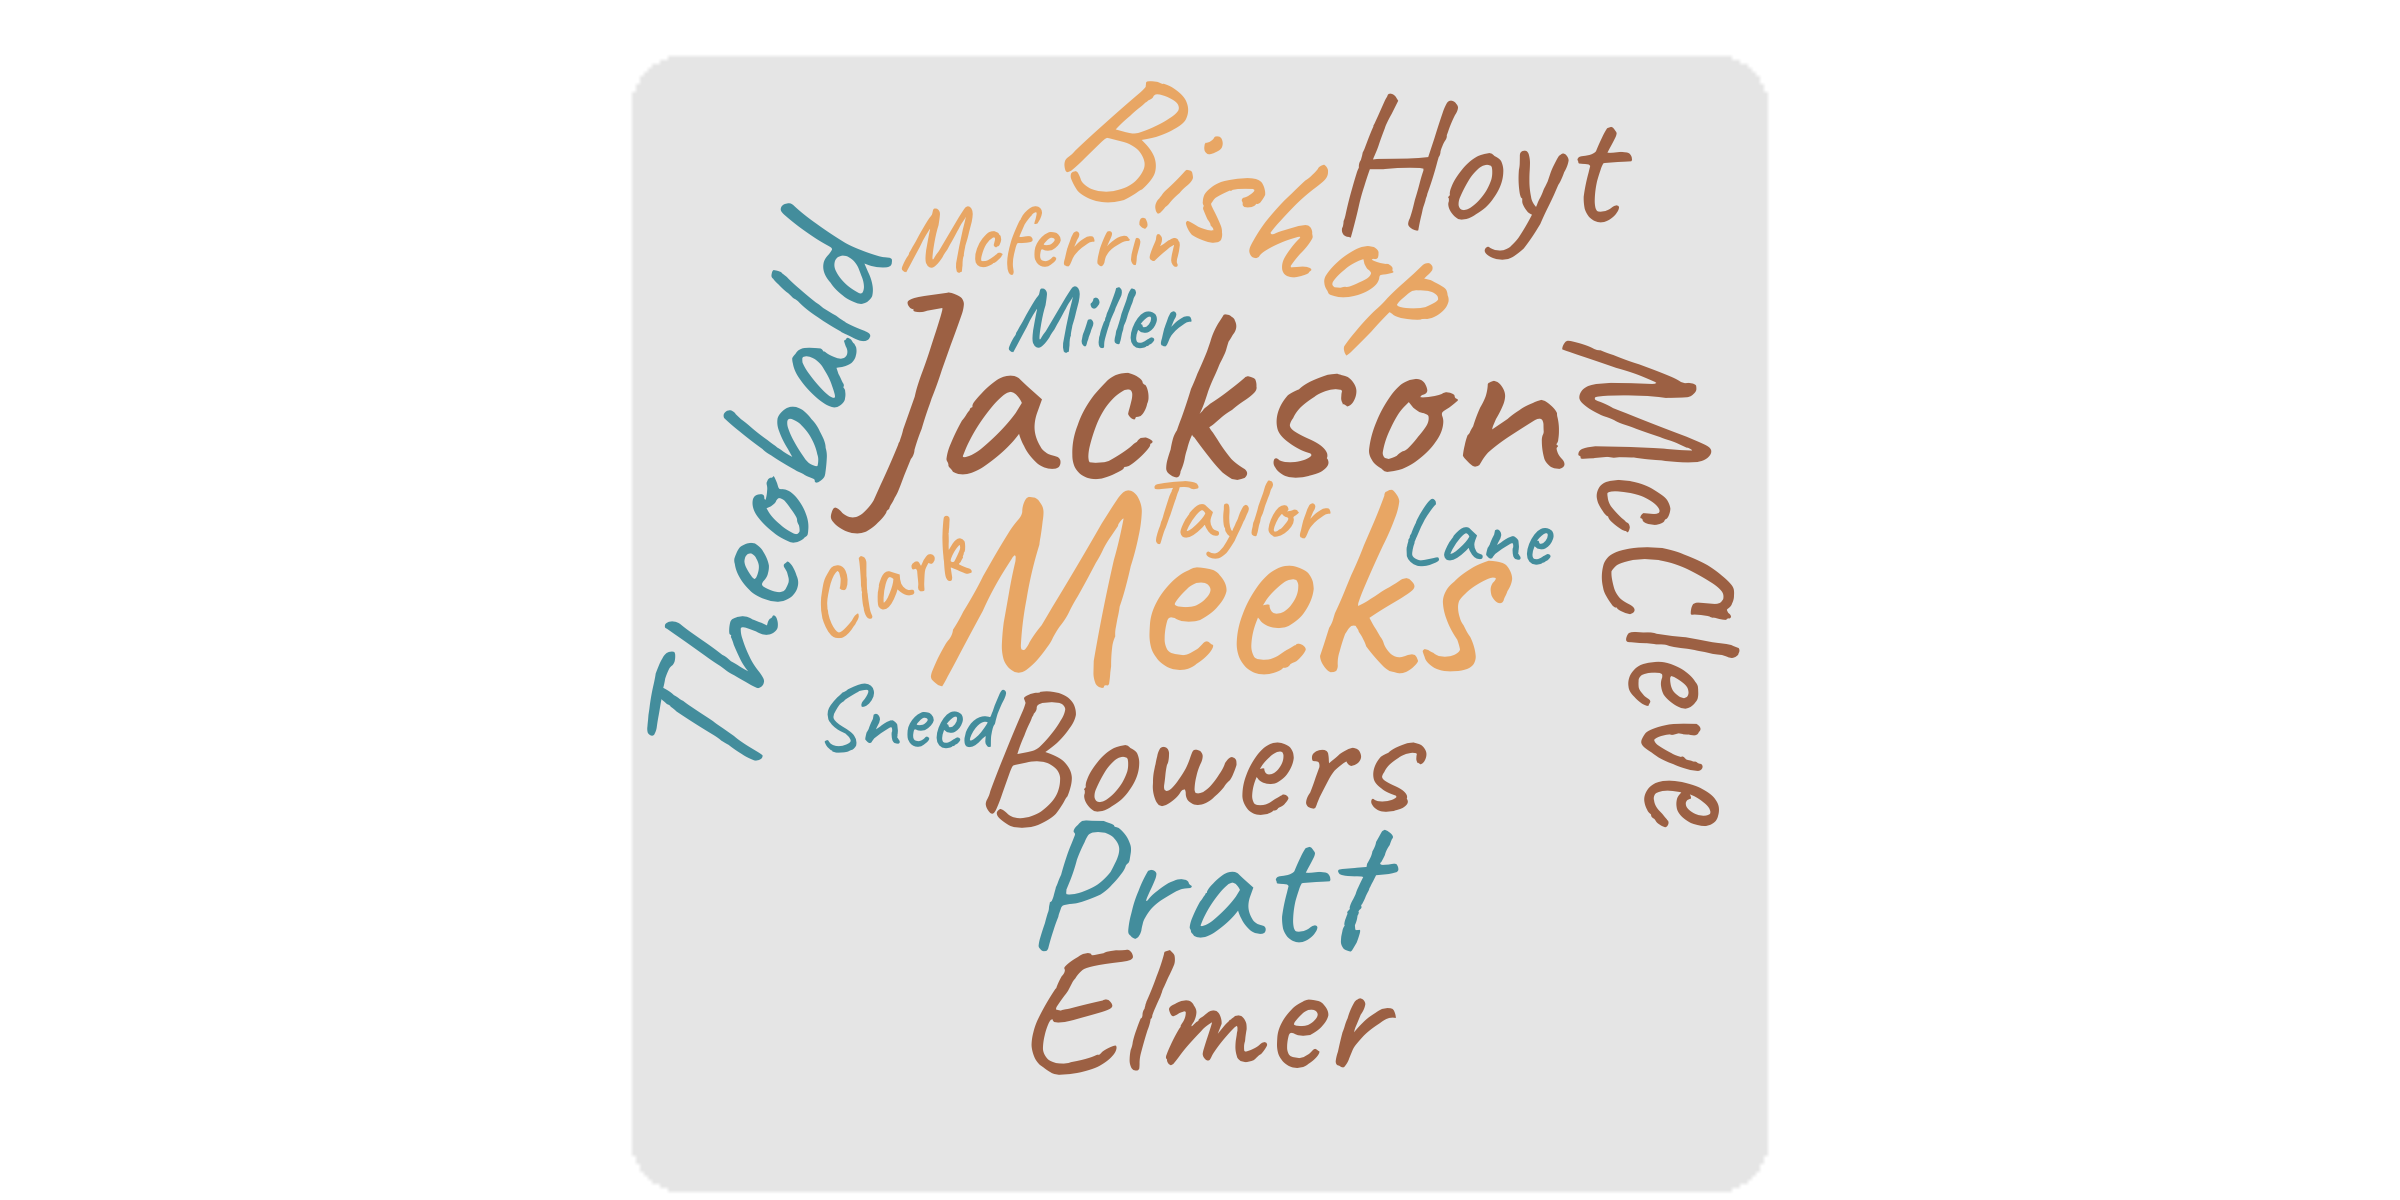 Bishop
Hoyt
Mcferrin
Theobald
Miller
Jackson
Mc Cleve
Taylor
Lane
Clark
Meeks
Sneed
Bowers
Pratt
Elmer